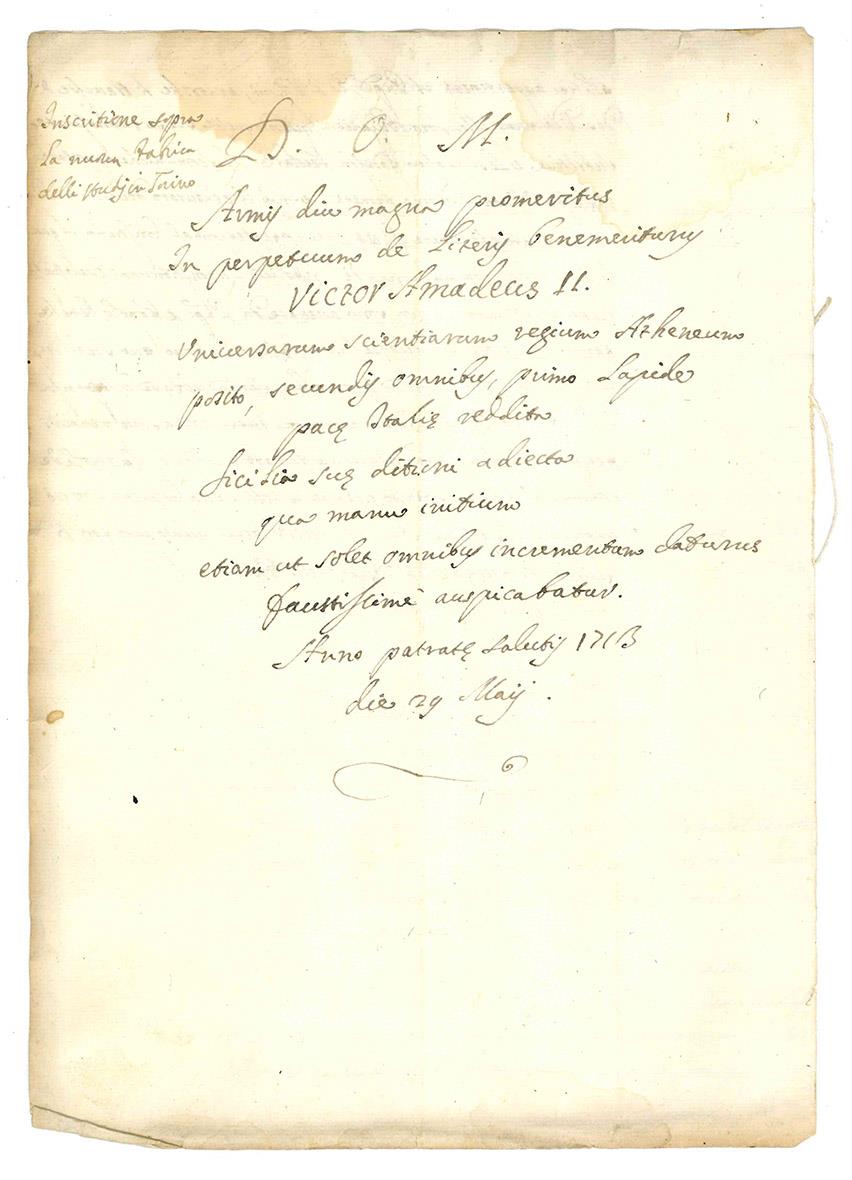 Inscritione sopra
La nuova fabrica
delli studij in Torino
D. O. M.
Armis diu magna promeritus
In perpetuum de Literis benemeriturus
Victor Amadeus II.
Universarum scientiarum regium Atheneum
posito, secundis omnibus, primo Lapide
pacę Italię reddita
Sicilia suę ditioni adiecta
qua manu initium
etiam ut solet omnibus incrementum daturus
faustissimè auspicabatur.
Anno patratę salutis 1713
die 29 Maij.